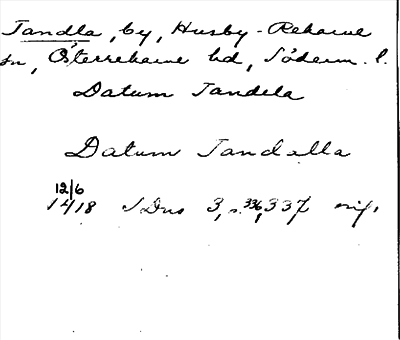 Tandla, by, Husby-Rekarne
sn, Österrekarne hd, Söderm. l.
Datum Tandela
Datum Tandella
12/6
1418 SDns 3, s. 336, 337 orig.